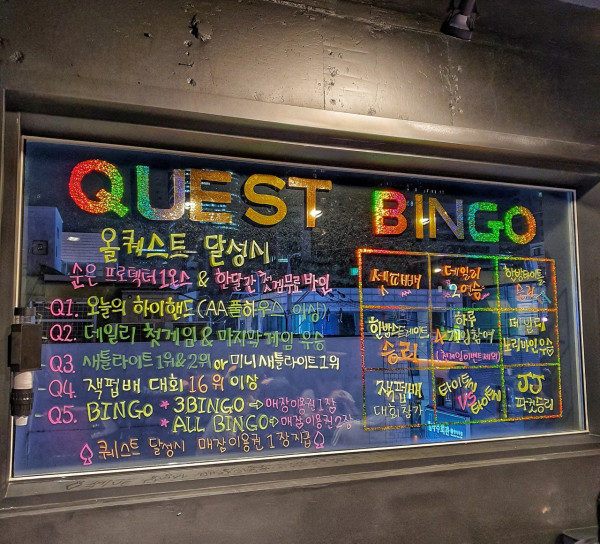 QUEST BINGO
올퀘스트 달성시
순은 프로텍터 1온스 & 한달간 첫게임무료 바인
Q1. 오늘의 하이핸드 (AA풀하우스 이상)
Q2. 데일리 첫게임 & 마지막게임 우승
Q3. 새틀라이트 1위&2위 or 미니새틀라이트 1위
Q4. 잭펍배 대회 16위 이상
Q5. BINGO * 3BINGO ⇒ 매장이용권 1장
* ALL BINGO ⇒ 매장이용권 2장
♤ 퀘스트 달성시 매장이용권 1장지급 ♤
데일리
2연승
승리
하루
데일리
잭펍배
대회참가
타이틀
VS
타이틀
JJ
파켓승리